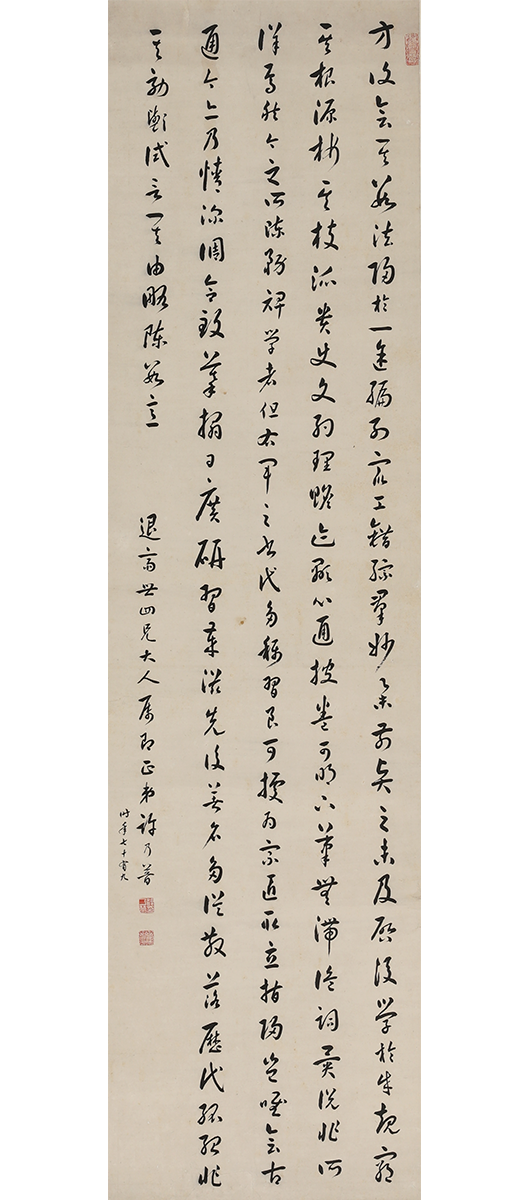 方復會其數法歸於一途編列眾工錯綜群妙舉前賢之未及啟後學於成規窺
其根源析其枝派貴使文約理贍迹顯心通披卷可明下筆無滯詭詞異說非所
詳焉然今之所陳務裨學者但右軍之書代多稱習良可據為宗匠取立指歸豈唯會古
通今亦乃情深調合致摹搨日廣研習歲滋先後著名多從散落歷代孤紹非
其效歟試言其由略陳數意
退齋世四兄大人屬即正弟許乃普
時年七十有九